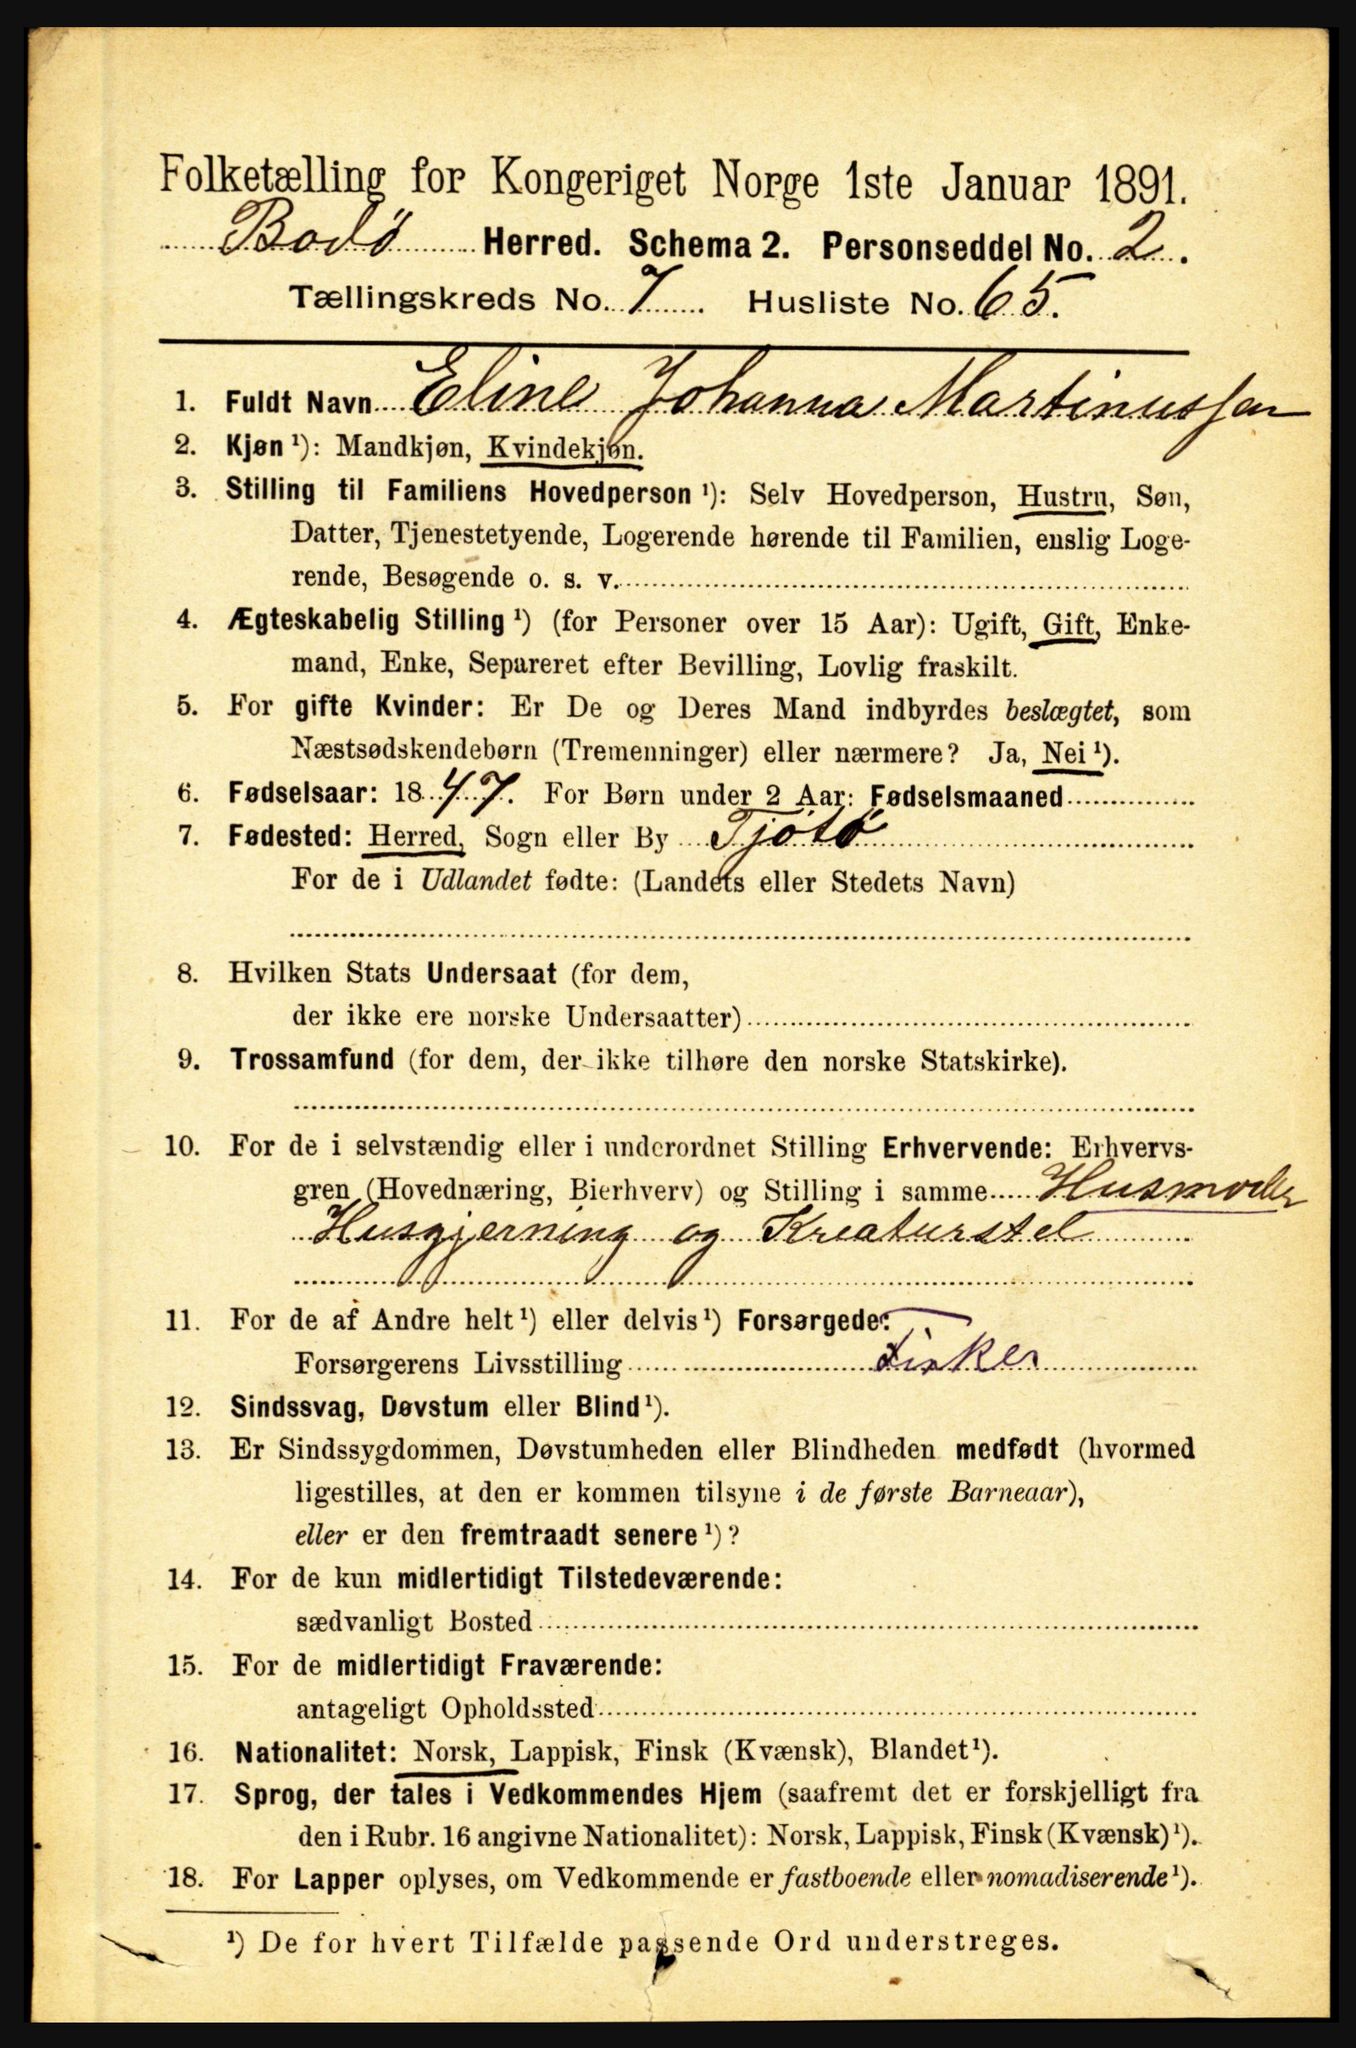 Folketælling for Kongeriget Norge 1ste Januar 1891.
Bodø Herred. Schema 2. Personseddel No. 2.
Tællingskreds No. 7 Husliste No. 65.
1. Fuldt Navn Eline Johanna Martinussen
2. Kjøn ¹): Mandkjøn, Kvindekjøn.
3. Stilling til Familiens Hovedperson ¹): Selv Hovedperson, Hustru, Søn,
Datter, Tjenestetyende, Logerende hørende til Familien, enslig Loge-
rende, Besøgende o. s. v.
4. Ægteskabelig Stilling ¹) (for Personer over 15 Aar): Ugift, Gift, Enke-
mand, Enke, Separeret efter Bevilling, Lovlig fraskilt.
5. For gifte Kvinder: Er De og Deres Mand indbyrdes beslægtet, som
Næstsødskendebørn (Tremenninger) eller nærmere? Ja, Nei ¹).
6. Fødselsaar: 1847. For Børn under 2 Aar: Fødselsmaaned
7. Fødested: Herred, Sogn eller By Tjøtø
For de i Udlandet fødte: (Landets eller Stedets Navn)
8. Hvilken Stats Undersaat (for dem,
der ikke ere norske Undersaatter)
9. Trossamfund (for dem, der ikke tilhøre den norske Statskirke).
10. For de i selvstændig eller i underordnet Stilling Erhvervende: Erhvervs-
gren (Hovednæring, Bierhverv) og Stilling i samme Husmoder
Husgjerning og Kreaturstel
11. For de af Andre helt ¹) eller delvis ¹) Forsørgede:
Forsørgerens Livsstilling Fisker
12. Sindssvag, Døvstum eller Blind ¹).
13. Er Sindssygdommen, Døvstumheden eller Blindheden medfødt (hvormed
ligestilles, at den er kommen tilsyne i de første Barneaar),
eller er den fremtraadt senere ¹)?
14. For de kun midlertidigt Tilstedeværende:
sædvanligt Bosted
15. For de midlertidigt Fraværende:
antageligt Opholdssted
16. Nationalitet: Norsk, Lappisk, Finsk (Kvænsk), Blandet ¹).
17. Sprog, der tales i Vedkommendes Hjem (saafremt det er forskjelligt fra
den i Rubr. 16 angivne Nationalitet): Norsk, Lappisk, Finsk (Kvænsk) ¹).
18. For Lapper oplyses, om Vedkommende er fastboende eller nomadiserende ¹).
¹) De for hvert Tilfælde passende Ord understreges.